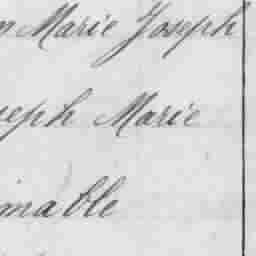 Marie Joseph
seph Marie
imable